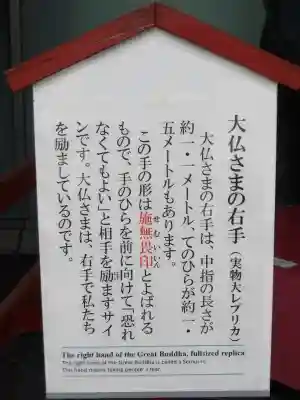 大仏さまの右手（実物大レプリカ）
大仏さまの右手は、中指の長さが
約一・一メートル、てのひらが約一・
五メートルもあります。
この手の形は施無畏印とよばれる
せむいいん
もので、手のひらを前に向けて「恐れ
なくてもよい」と相手を励ますサイ
ンです。大仏さまは、右手で私たち
を励ましているのです。
The right hand of the Great Buddha, fullsized replica
The right hand of the Great Buddha is called a Semui-in.
This hand means taking people's fear.